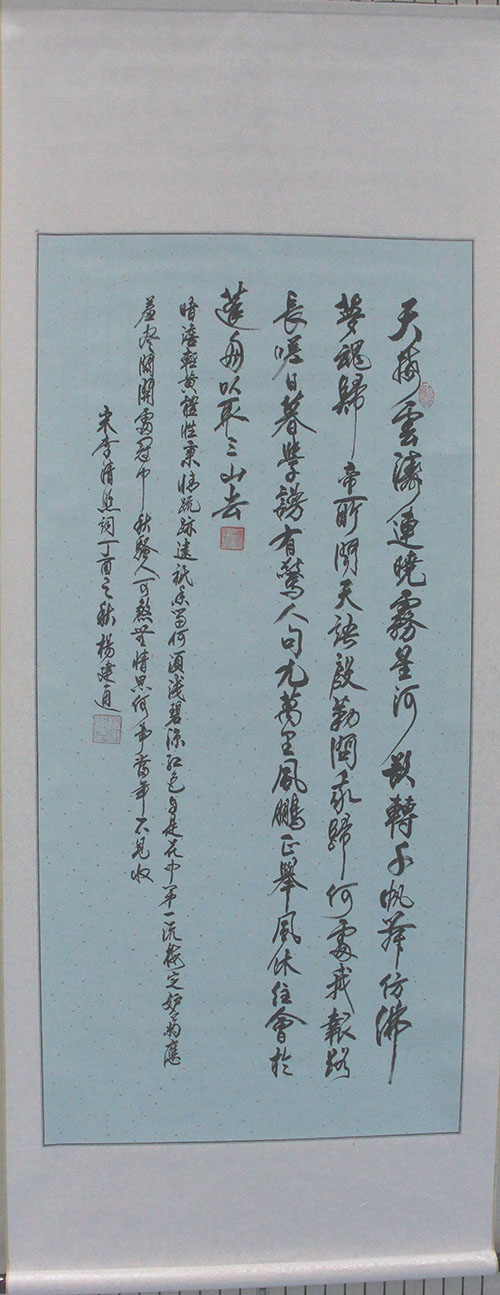 天接雲濤連曉霧星河欲轉千帆舞仿佛
夢魂歸帝所聞天語殷勤問我歸何處我報路
長嗟日暮學謾有驚人句九萬里風鵬正舉風休住會於
蓬舟以取三山去
暗淡輕黃體性柔情疏跡遠祇香留何須淺碧深紅色自是花中第一流梅定妒菊應
羞闌開處冠中秋騷人可煞無情思何事當年不見收
宋李清照詞丁酉之秋楊建